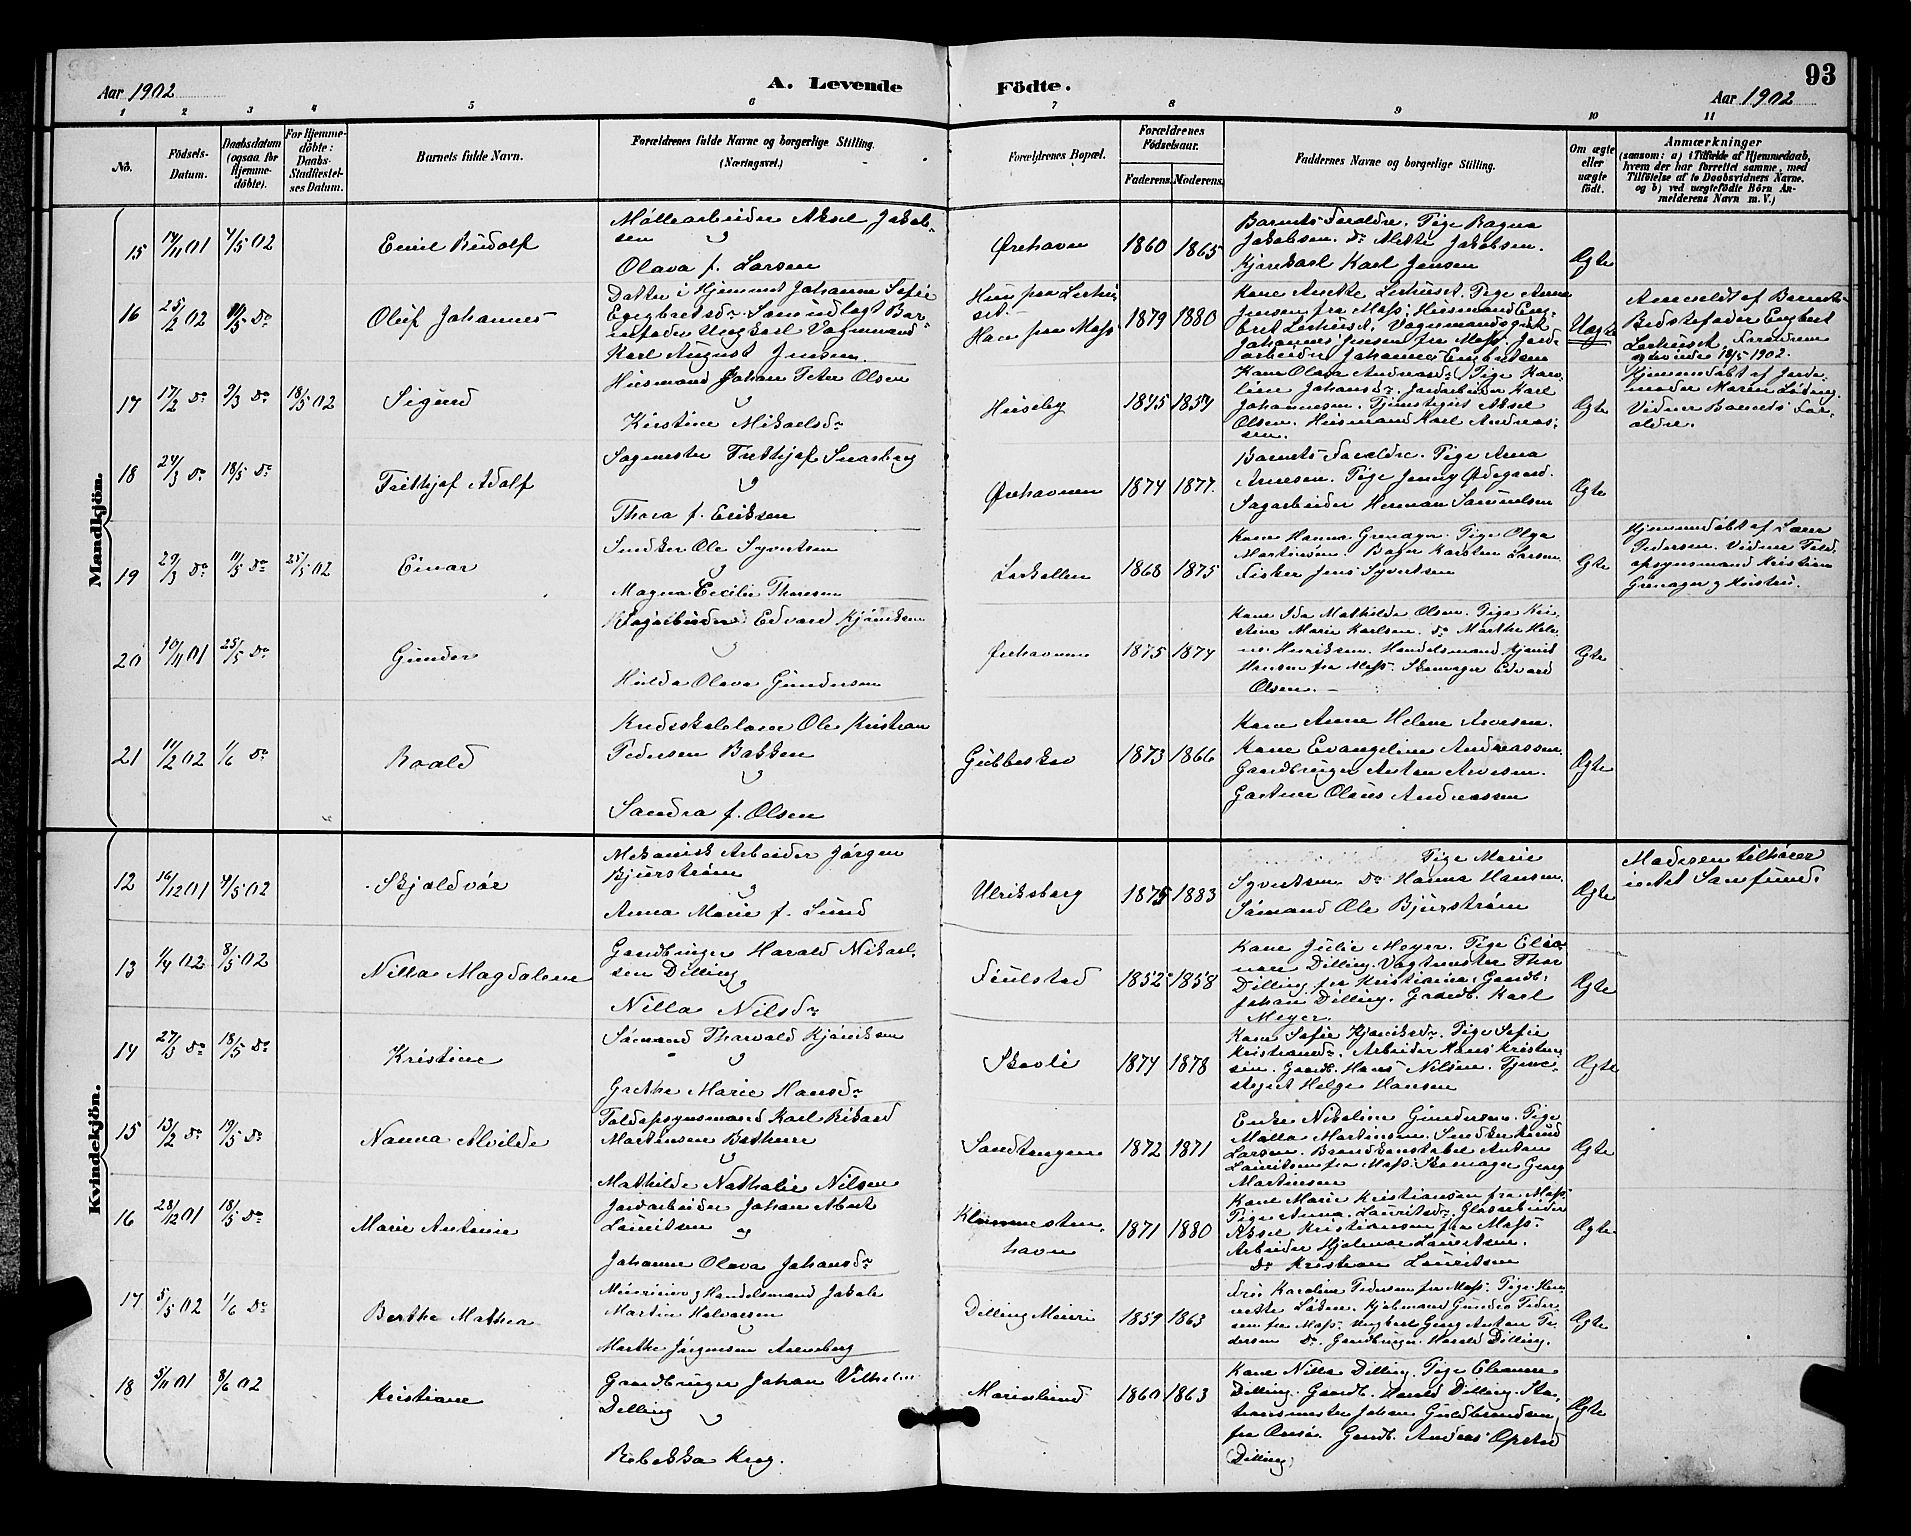 Aar 1902
A. Levende
Födte.
93
Aar 1902
1 2 3 4 5 6 7 8 9 10 11
No.
Födsels-Datum.
Daabsdatum (ogsaa for Hjemme-döbte).
For Hjemme-döbte: Daabs-Stadfæstel-ses Datum.
Barnets fulde Navn.
Forældrenes fulde Navne og borgerlige Stilling. (Næringsvei.)
Forældrenes Bopæl.
Forældrenes Födselsaar.
Faderens. Moderens.
Faddernes Navne og borgerlige Stilling.
Om ægte eller uægte födt.
Anmærkninger
(saasom: a) i Tilfælde af Hjemmedaab, hvem der har forrettet samme, med Tilföielse af to Daabsvidners Navne. og b) ved uægtefödte Börn An-melderens Navn m. V.)
Mandkjön.
15 17/11 01 4/5 02 Emil Rudolf
Møllearbeider Aksel Jakob-
sen
Olava f. Larsen
Ørehavn 1860 1865
Barnets Forældre. Pige Ragna
Jakobsen. do Mette Jakobsen.
Kjørekarl Karl Jensen
Ægte
16 25/2 02 11/5 do Oluf Johannes
Datter i Hjemmet Johanne Sofie
Engebretsdr. Som udlagt Bar-
nefader Ungkarl Vognmand
Karl August Jensen
Hun fra Lerhu-
set.
Han fra Moss. 1879 1880
Kone Anette Lerhuset. Pige Anna
Jensen fra Moss. Husmand Eng-
bret Lerhuset. Vognmandsgut
Johannes Jensen fra Moss. Jord-
arbeider Johannes Engbretsen
Uægte
Anmeldt af Barnets
Bedstefader Engbret
Lerhuset. Forældrene
18/5 1902.
17 17/2 do 2/3 do 18/5 02 Sigurd
Husmand Johan Peter Olsen
Kirstine Mikaelsdr
Huseby 1845 1857
Kone Olava Andreasdr. Pige Karo-
line Johansdr. Jordarbeider Karl
Johannesen. Tjenstegut Aksel
Olsen. Husmand Karl Andreas-
sen.
Ægte
Hjemmedøbt af Jorde-
moder Maren Løken.
Vidner Barnets For-
ældre.
18 24/3 do 18/5 do Frithjof Adolf
Sagmester Frithjof Snarberg
Thora f. Eriksen
Ørehavnen 1874 1877.
Barnets Forældre. Pige Anna
Arnesen. Pige Jenny Ødegaard.
Sagarbeider Herman Samuelsen
Ægte
19 29/3 do 11/5 do 25/5 02 Einar
Snedker Ole Syvertsen
Magna Cecilie Thoresen
Larkollen 1868 1875
Kone Hanna Grenager. Pige Olga
Martinsen. Bager Karsten Larsen.
Fisker Jens Syvertsen
Ægte
Hjemmedøbt af Lærer
Pedersen. Vidner Told-
opsynsmand Kristian
Grenager og Hustru.
20 10/11 01 25/5 do Gunder
Sagarbeider Edvard Kjøniksen
Hulda Olava Gundersen
Ørehavnen 1875 1874
Kone Ida Mathilde Olsen. Pige Kri-
stine Marie Karlsen. do Marthe Hele-
ne Henriksen. Handelsmand
Hansen fra Moss. Skomager Edvard
Olsen. –
Ægte
21 11/2 02 1/6 do Roald
Ole Kristian
Pedersen Bakken
Sandra f. Olsen
Gubbeskov 1873 1866
Kone Anne Helene Arvesen.
Kone Evangeline Andreassen.
Gaardbruger Anton Arvesen.
Gartner Olaus Andreassen
Ægte
Kvindekjön.
12 16/12 01 4/5 02 Skjoldvør
Mekanisk Arbeider Jørgen
Bjurstrøm
Anna Marie f. Lund
Ulriksborg 1875 1883
Pige Marie
Syvertsen Do Hanna Hansen.
Sømand Ole Bjurstrøm
Ægte
Moderen tilhører
intet Samfund.
13 1/4 02 8/5 02 Nilla Magdalene
Gaardbruger Harald Nikael-
sen Dilling
Nilla Nilsdr
Fiulstad 1852 1858
Kone Julie Meyer. Pige Elia-
nore Dilling. Vagtmester Thor
Dilling fra Kristiania. Gaardb.
Johan Dilling. Gaardb. Karl
Meyer.
Ægte
14 27/3 do 18/5 do Kristine
Sømand Thorvald Kjøniksen
Grethe Marie Hansdr
Skovli 1874 1878
Kone Sofie Kjøniksdr. Pige Sofie
Kristiansdr. Arbeider Hans Kristen-
sen. Gaardb. Hans Nilsen. Tjene-
stegut Helge Hansen
Ægte
15 13/2 do 19/5 do Nanna Alvilde
Toldopsynsmand Karl Rikard
Martinsen Bathenre
Mathilde Nathalie Nilsen
Sandtangen 1872 1871
Enke Nikoline Gundersen. Pige
Malla Martinsen. Snedker Knud
Larsen. Brandkonstabel Anton
Lauritsen fra Moss. Skomager Georg
Martinsen
Ægte
16 28/12 01 18/5 do Marie Antonie
Jordarbeider Johan Albert
Lauritsen og
Johanne Olava Johansdr
Klommesten-
havn 1871 1880
Kone Marie Kristiansen fra Moss.
Pige Anna Lauritsdr. Glasarbeider
Aksel Kristiansen fra Moss.
Arbeider Hjalmar Lauritsen.
Do Kristian Lauritsen
Ægte
17 5/5 02 1/6 Do Berthe Mathea
Meierier og Handelsmand Jakob
Martin Halvorsen
Marthe Jørgensen Arneberg
Dilling Meieri 1859 1863
Karoline Pedersen fra Moss. Pige Hen-
riette Løken. Kjøbmand Gunder Peder-
sen fra Moss. Ungkarl Georg Anton Pe-
dersen Do. Gaardbruger Harald Dilling.
Ægte
18 5/11 01 8/6 02 Kristiane
Gaardbruger Johan Vilhelm
Dilling
Rebekka Krog.
Marielund 1860 1863
Kone Nilla Dilling. Pige Eleanore
Dilling. Gaardb. Harald Dilling. Sta-
tionsmester Johan Guldbrandsen
fra Onsø. Gaardb. Anders Opstad
(Dilling)
Ægte